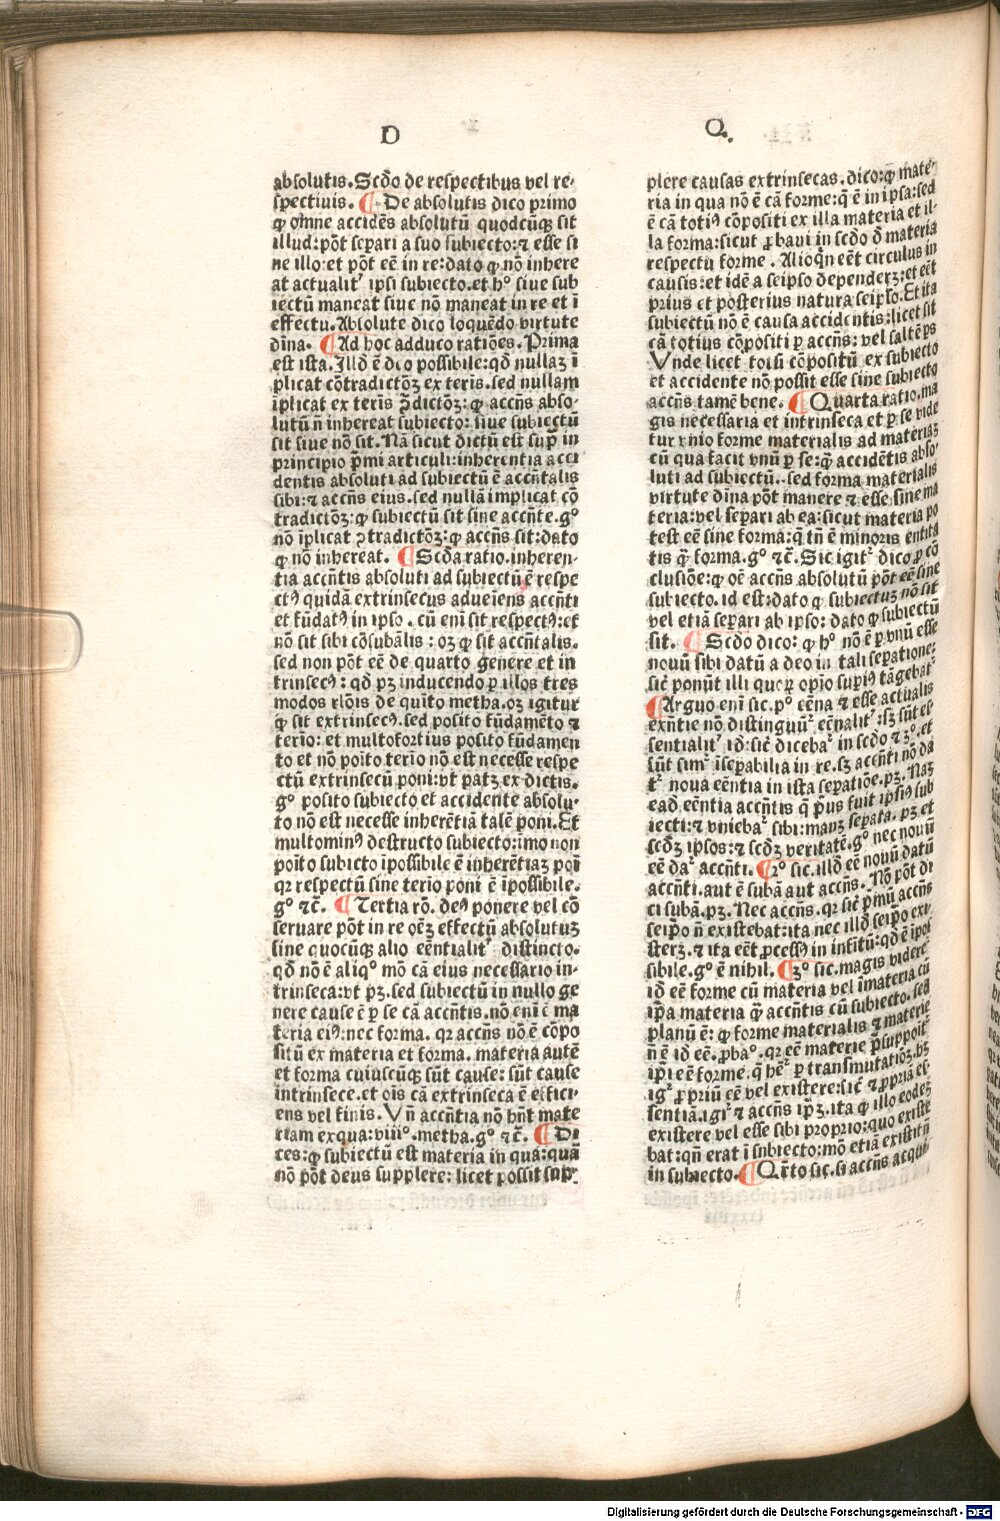 D
absolutis. Scdo de respectibus vel re-
spectiuis. ¶ De absolutis dico primo
ꝙ omne accidēs absolutū quodcūqȝ sit
illud: pōt separi a suo subiecto: ⁊ esse si
ne illo: et pōt eē in re: dato ꝙ nō inhere
at actualitʳ ipsi subiecto. et hᵒ siue sub
iectū maneat siue nō maneat in re et ī
effectu. Absolute dico loquēdo virtute
dīna. ¶ Ad hoc adduco ratiōes. Prima
est ista. Illđ ē deo possibile: qđ nullaȝ ī
plicat cōtradictōȝ ex teris. sed nullam
īplicat ex teris p̄dictōȝ: ꝙ accn̄s abso-
lutū n̄ inhereat subiecto: siue subiectū
sit siue nō sit. Nā sicut dictū est supͣ in
principio pͥmi articuli: inherentia acci
dentis absoluti ad subiectū ē accn̄talis
sibi: ⁊ accn̄s eius. sed nullā implicat cō
tradictōȝ: ꝙ subiectū sit sine accn̄te. gᵒ
nō īplicat ↄtradictōȝ: ꝙ accn̄s sit: dato
ꝙ nō inhereat. ¶ Scďa ratio. inheren-
tia accn̄tis absoluti ad subiectū ē respe
ctꝰ quidā extrinsecus adueīens accn̄ti
et fūdatꝰ in ipso. cū eni sit respectꝰ: et
nō sit sibi cōsubālis: oȝ ꝙ sit accn̄talis.
sed non pōt eē de quarto genere et in
trinsecꝰ: qđ pȝ inducendo ꝑ illos tres
modos rlōis de quīto metha. oȝ igitur
ꝙ sit extrinsecꝰ. sed posito fūdamēto ⁊
terīo: et multofortius posito fūdamen
to et nō poito terīo nō est necesse respe
ctū extrinsecū poni: vt patȝ ex dictis.
gᵒ posito subiecto et accidente absolu-
to nō est necesse inherētiā talē poni. Et
multominꝰ destructo subiecto: īmo non
poīto subicto īpossibile ē inherētiaȝ poī
qꝛ respectū sine terīo poni ē īpossibile.
gᵒ ⁊c̄. ¶ Tertia rō. deꝰ ponere vel cō
seruare pōt in re oēȝ effectū absolutuȝ
sine quocūqȝ alio eēntialitʳ distincto.
qđ nō ē aliqᵒ mō cā eius necessario in-
trinseca: vt pȝ. sed subiectū in nullo ge
nere cause ē ꝑ se cā accn̄tis. nō enī ē ma
teria eiꝰ: nec forma. qꝛ accn̄s nō ē cōpo
sitū ex materia et forma. materia autē
et forma cuiuscūqȝ sūt cause: sūt cause
intrinsece. et oīs cā extrinseca ē effici-
ens vel finis. Vn̄ accn̄tia nō hn̄t mate
riam exqua: viiiᵒ. metha. gᵒ ⁊c̄. ¶ Di
ces: ꝙ subiectū est materia in qua: quā
nō pōt deus supplere: licet possit sup-
Q.
plere causas extrinsecas. dico: ꝙ mate-
ria in qua nō ē cā forme: qͣ ē in ipsa: sed
ē cā totiꝰ cōpositi ex illa materia et il-
la forma: sicut ꝓbaui in scďo đ materia
respectu forme. Alioqͥn eēt circulus in
causis: et idē a seipso dependerȝ: et eēt
prius et posterius natura seipso. Et ita
subiectū nō ē causa accidentis: licet sit
cā totius cōpositi ꝑ accn̄s: vel saltē ps
Vnde licet totū cōpositū ex subiecto
et accidente nō possit esse sine subiecto
accn̄s tamē bene. ¶ Quarta ratio. ma
gis necessaria et intrinseca et ꝑ se vide
tur vnio forme materialis ad materiaȝ
cū qua facit vnū ꝑ se: qͣȝ accidētis abso-
luti ad subiectū. sed forma materialis
virtute dīna pōt manere ⁊ esse sine ma
teria: vel separi ab ea: sicut materia po
test eē sine forma: q̄ tn̄ ē minoris entita
tis qͣȝ forma. gᵒ ⁊c̄. Sic igitʳ dico ꝓ cō
clusiōe: ꝙ oē accn̄s absolutū pōt eē sine
subiecto. id est: dato ꝙ subiectuȝ nō sit
vel etiā separi ab ipso: dato ꝙ subiectū
sit. ¶ Scďo dico: ꝙ hᵒ nō ē ꝑ vnū esse
nouū sibi datū a deo in tali sepatione:
sic̄ ponūt illi quoꝝ opīo supiꝰ tāgebatʳ
¶ Arguo enī sic. pᵒ cēna ⁊ esse actualis
exn̄tie nō distinguūtʳ eēnalitʳ: sȝ sūt es
sentialitʳ id: sic̄ dicebaʳ in scďo ⁊ ȝᵒ. et
sūt simʳ īsepabilia in re. sȝ accn̄ti nō da
tʳ noua eēntia in ista sepatiōe. pȝ. Naȝ
eađ eēntia accn̄tis q̄ pͥus fuit ipsiꝰ sub
iecti: ⁊ vniebaʳ sibi: manȝ sepata. pȝ et
scďȝ ipsos: ⁊ scďȝ veritatē. gᵒ nec nouū
eē daʳ accn̄ti. ¶ 2ᵒ sic. illđ eē nouū datū
accn̄ti. aut ē subā aut accn̄s. Nō pōt di
ci subā. pȝ. Nec accn̄s. qꝛ sic̄ pͥmū accn̄s
seipo n̄ existebat: ita nec illđ seipo exi
sterȝ. ⁊ ita eēt ꝓcessꝰ in infītū: qđ ē īpos
sibile. gᵒ ē nihil. ¶ ȝᵒ sic. magis videreʳ
id eē forme cū materia vel īmateria cū
ipa materia qͣȝ accn̄tis cū subiecto. sed
planū ē: ꝙ forme materialis ⁊ materie
n̄ ē id eē. ꝓbaᵒ. qꝛ eē materie pͥsuppoitʳ
ipi eē forme. qͣ heʳ ꝑ transmutatiōȝ. hȝ
igʳ ꝓpriū eē vel existere: sic̄ ⁊ ꝓpriā es-
sentiā. igʳ ⁊ accn̄s ipȝ. ita ꝙ illo eodeȝ
existere vel esse sibi proprio: quo existe
bat: qn̄ erat ī subiecto: mō etiā existit n̄
in subiecto. ¶ Qͣrto sic. si accn̄s acqui